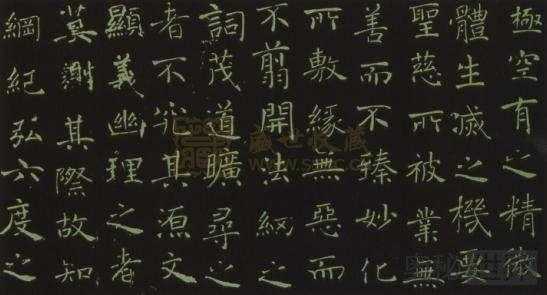 極空有之精微
體生滅之機要
聖慈所被業無
善而不臻妙化
所敷緣無惡而
不翦開法網之
詞茂道曠尋之
者不究其源文
顯義幽理之者
莫測其際故知
綱紀弘六度之
盛世收藏